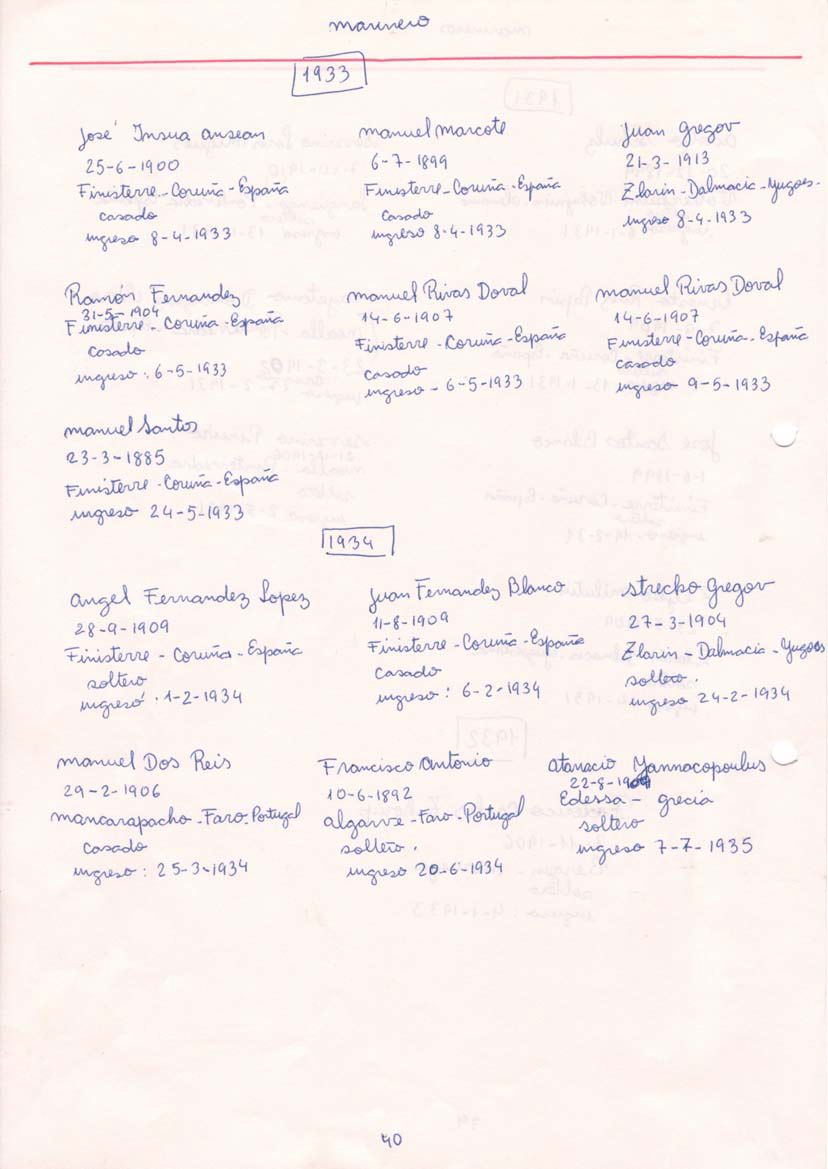 marinero
1933
José Insua ansean
25-6-1900
Finisterre-Coruña-España
casado
ingreso 8-4-1933
manuel marcote
6-7-1899
Finisterre-Coruña-España
casado
ingreso 8-4-1933
Juan gregov
21-3-1913
Zlarin-Dalmacia-Yugoes.
ingreso 8-4-1933
Ramón Fernandez
31-5-1904
Finisterre-Coruña-España
casado
ingreso: 6-5-1933
manuel Rivas Doval
14-6-1907
Finisterre-Coruña-España
casado
ingreso - 6-5-1933
manuel Rivas Doval
14-6-1907
Finisterre-Coruña-España
casado
ingreso 9-5-1933
manuel Santos
23-3-1885
Finisterre-Coruña-España
ingreso 24-5-1933
1934
angel Fernandez Lopez
28-9-1909
Finisterre - Coruña - España
soltero
ingresó . 1-2-1934
Juan Fernandez Blanco
11-8-1909
Finisterre-Coruña-España
casado
ingreso: 6-2-1934
strecko gregov
27-3-1904
Zlarin - Dalmacia - Yugoes
soltero.
ingreso 24-2-1934
manuel Dos Reis
29-2-1906
mancarapacho-Faro.Portugal
casado
ingreso: 25-3-1934
Francisco antonio
10-6-1892
algarve-Faro-Portugal
soltero.
ingreso 20-6-1934
atanacio Yannacopoulus
22-8-1909
Edessa - grecia
soltero
ingreso 7-7-1935
40